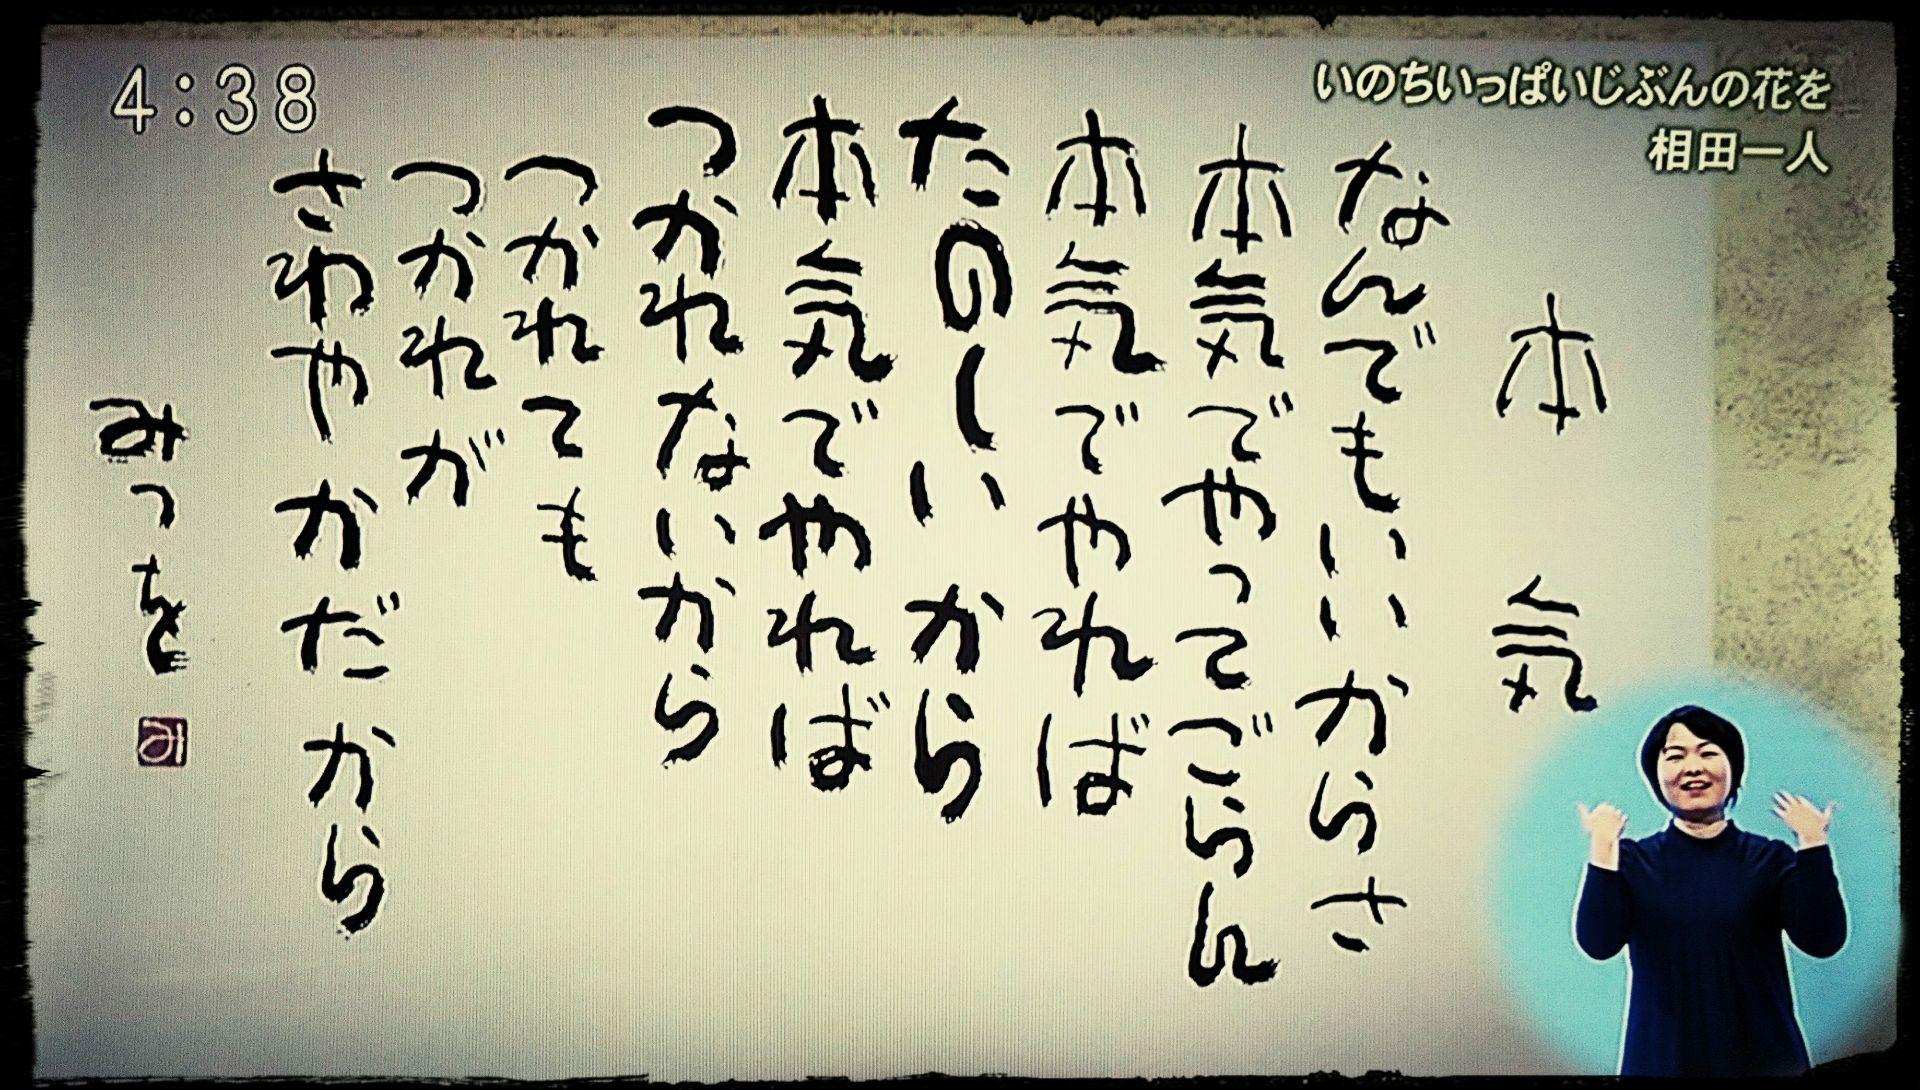 4:38
いのちいっぱいじぶんの花を
相田一人
本気
なんでもいいからさ
本気でやってごらん
本気でやれば
たのしいから
本気でやれば
つかれないから
つかれても
つかれが
さわやかだから
みつを
み